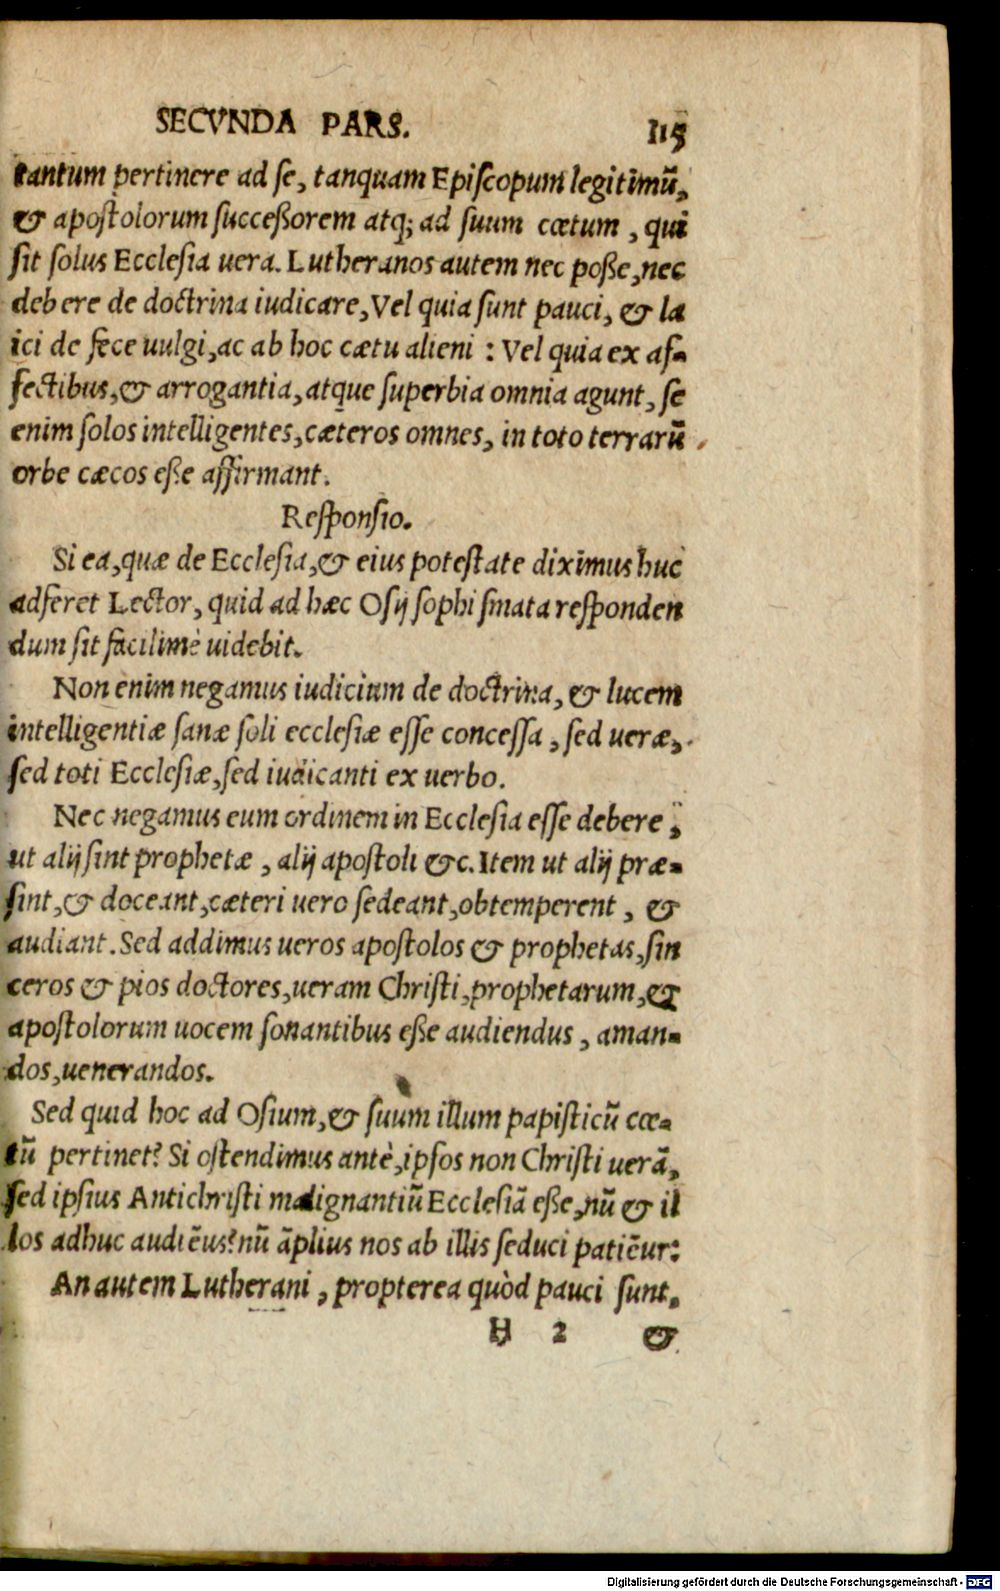 SECVNDA PARS. 115
tantum pertinere ad se, tanquam Episcopum legitimū,
& apostolorum successorem atq; ad suum cœtum, qui
sit solus Ecclesia uera. Lutheranos autem nec posse, nec
debere de doctrina iudicare, Vel quia sunt pauci, & la
ici de fece uulgi, ac ab hoc cœtu alieni: Vel quia ex af-
fectibus, & arrogantia, atque superbia omnia agunt, se
enim solos intelligentes, cæteros omnes, in toto terrarū
orbe cæcos esse affirmant.
Responsio.
Si ea, quæ de Ecclesia, & eius potestate diximus huc
adferet Lector, quid ad hæc Osij sophismata responden
dum sit facilimè uidebit.
Non enim negamus iudicium de doctrina, & lucem
intelligentiæ sanæ soli ecclesiæ esse concessa, sed ueræ,
sed toti Ecclesiæ, sed iudicanti ex uerbo.
Nec negamus eum ordinem in Ecclesia esse debere,
ut alij sint prophetæ, alij apostoli &c. Item ut alij præ-
sint, & doceant, cæteri uero sedeant, obtemperent, &
audiant. Sed addimus ueros apostolos & prophetas, sin
ceros & pios doctores, ueram Christi, prophetarum, &
apostolorum uocem sonantibus esse audiendus, aman-
dos, uenerandos.
Sed quid hoc ad Osium, & suum illum papisticū cœ-
tū pertinet? Si ostendimus antè, ipsos non Christi uerā,
sed ipsius Antichristi malignantiū Ecclesiā esse, nū & il
los adhuc audiēus? nū āplius nos ab illis seduci patiēur:
An autem Lutherani, propterea quòd pauci sunt,
H 2 &
Digitalisierung gefördert durch die Deutsche Forschungsgemeinschaft - DFG